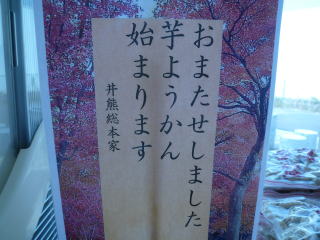 おまたせしました
芋ようかん
始まります
井熊総本家